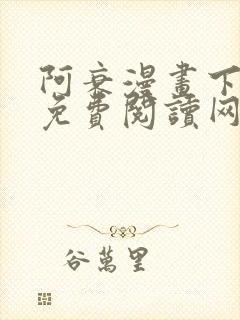 阿衰漫畫下
免費閱讀网
谷萬里